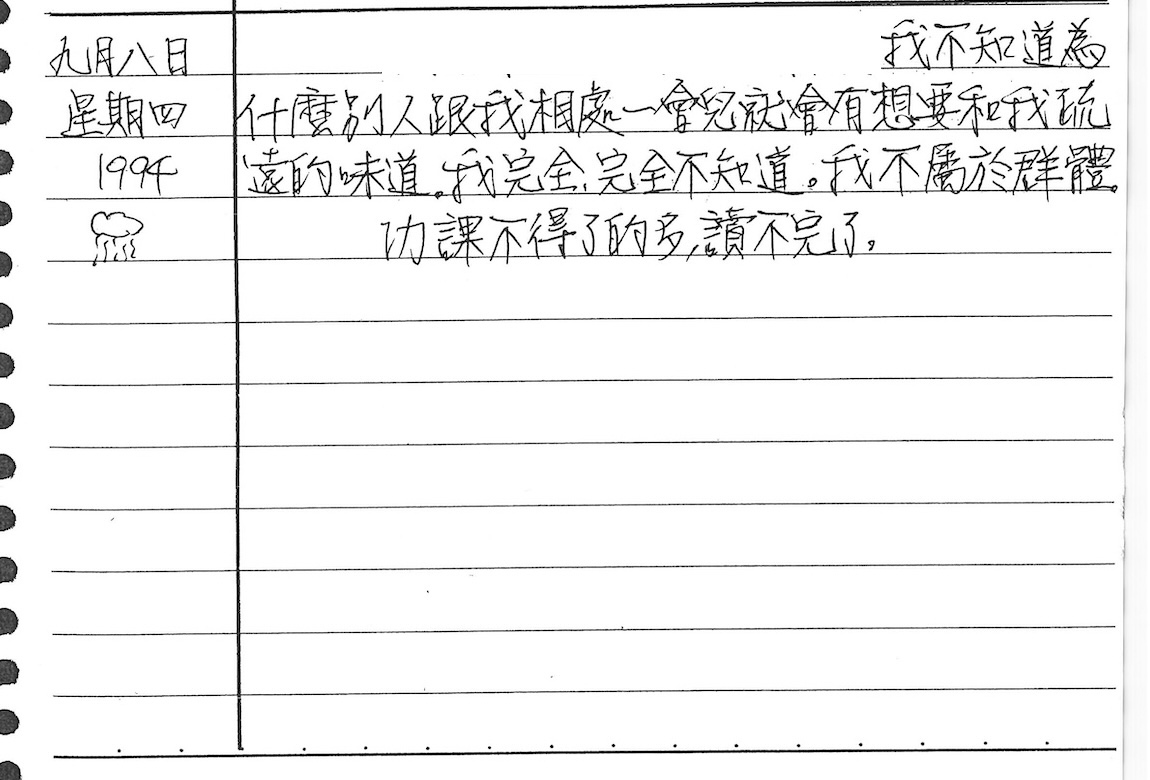 九月八日
星期四
1994
我不知道為
什麼別人跟我相處一會兒就會有想要和我疏
遠的味道。我完全、完全不知道。我不屬於群體。
功課不得了的多,讀不完了。